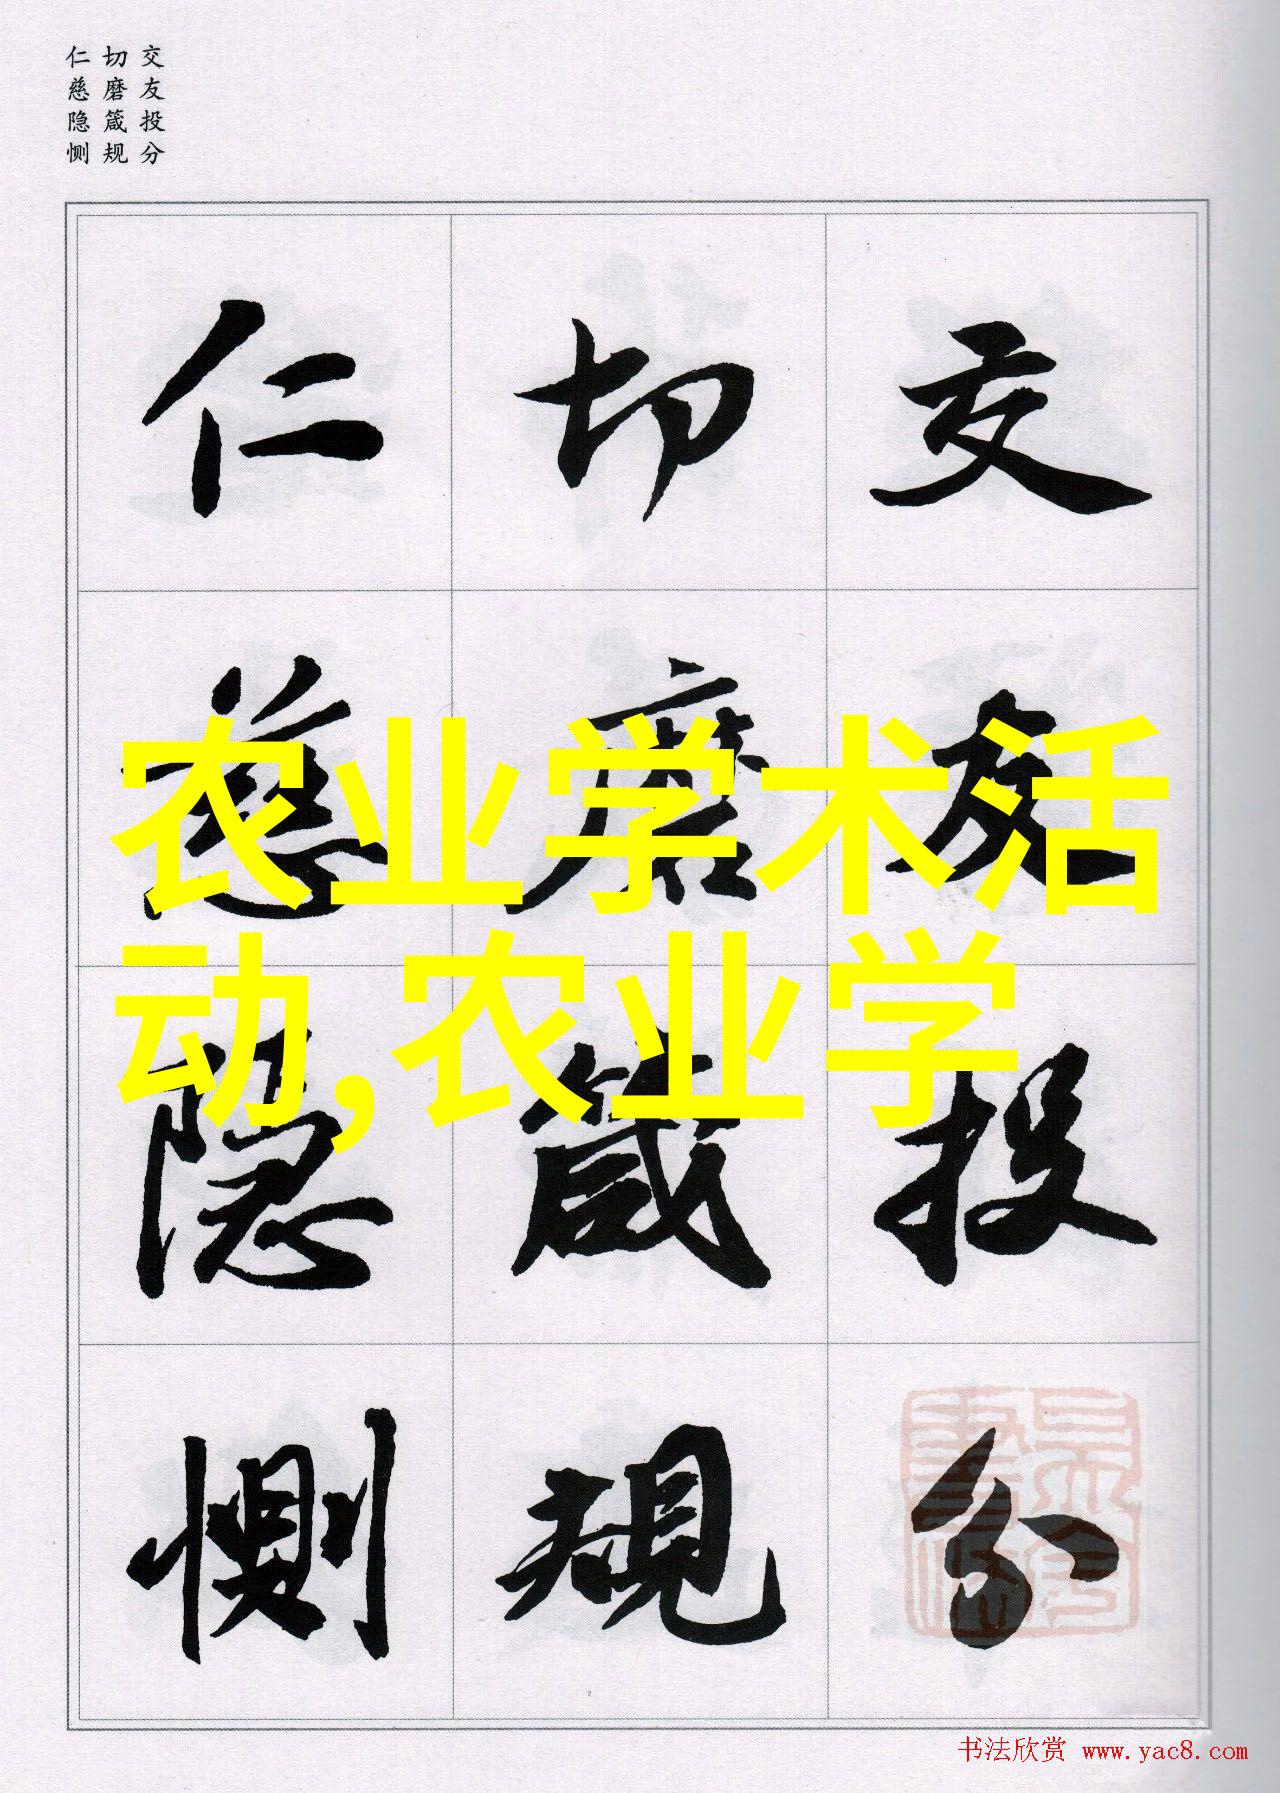 交友投分
切磨箴规
仁慈隐恻
交友投分
切磨箴规
仁慈隐恻
农业学术活
动,农业学
书法欣赏 www.yac8.com